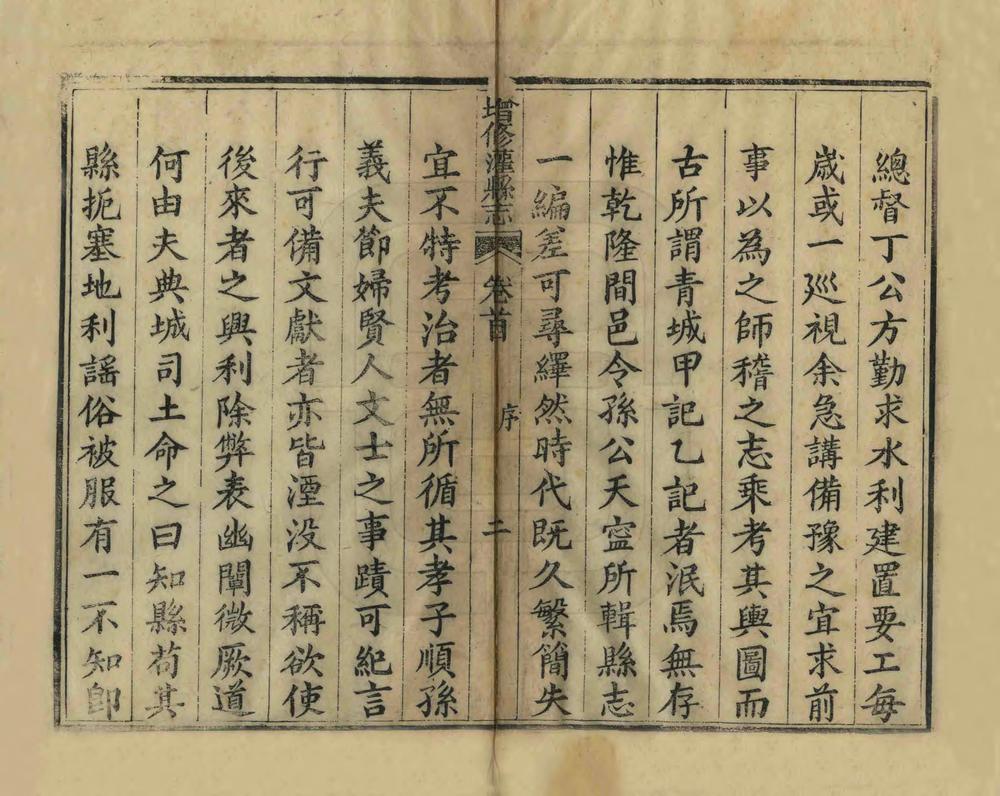 總督丁公方勤求水利建置要工每
歲或一廵視余急講備豫之宜求前
事以為之師稽之志乘考其輿圖而
古所謂青城甲記乙記者泯焉無存
惟乾隆間邑令孫公天寍所輯縣志
一編差可尋繹然時代既久繁簡失
增修灌縣志 卷首 序 二
宜不特考治者無所循其孝子順孫
義夫節婦賢人文士之事蹟可紀言
行可備文獻者亦皆湮没不稱欲使
後來者之興利除弊表幽闡微厥道
何由夫典城司土命之曰知縣苟其
縣扼塞地利謡俗被服有一不知卽